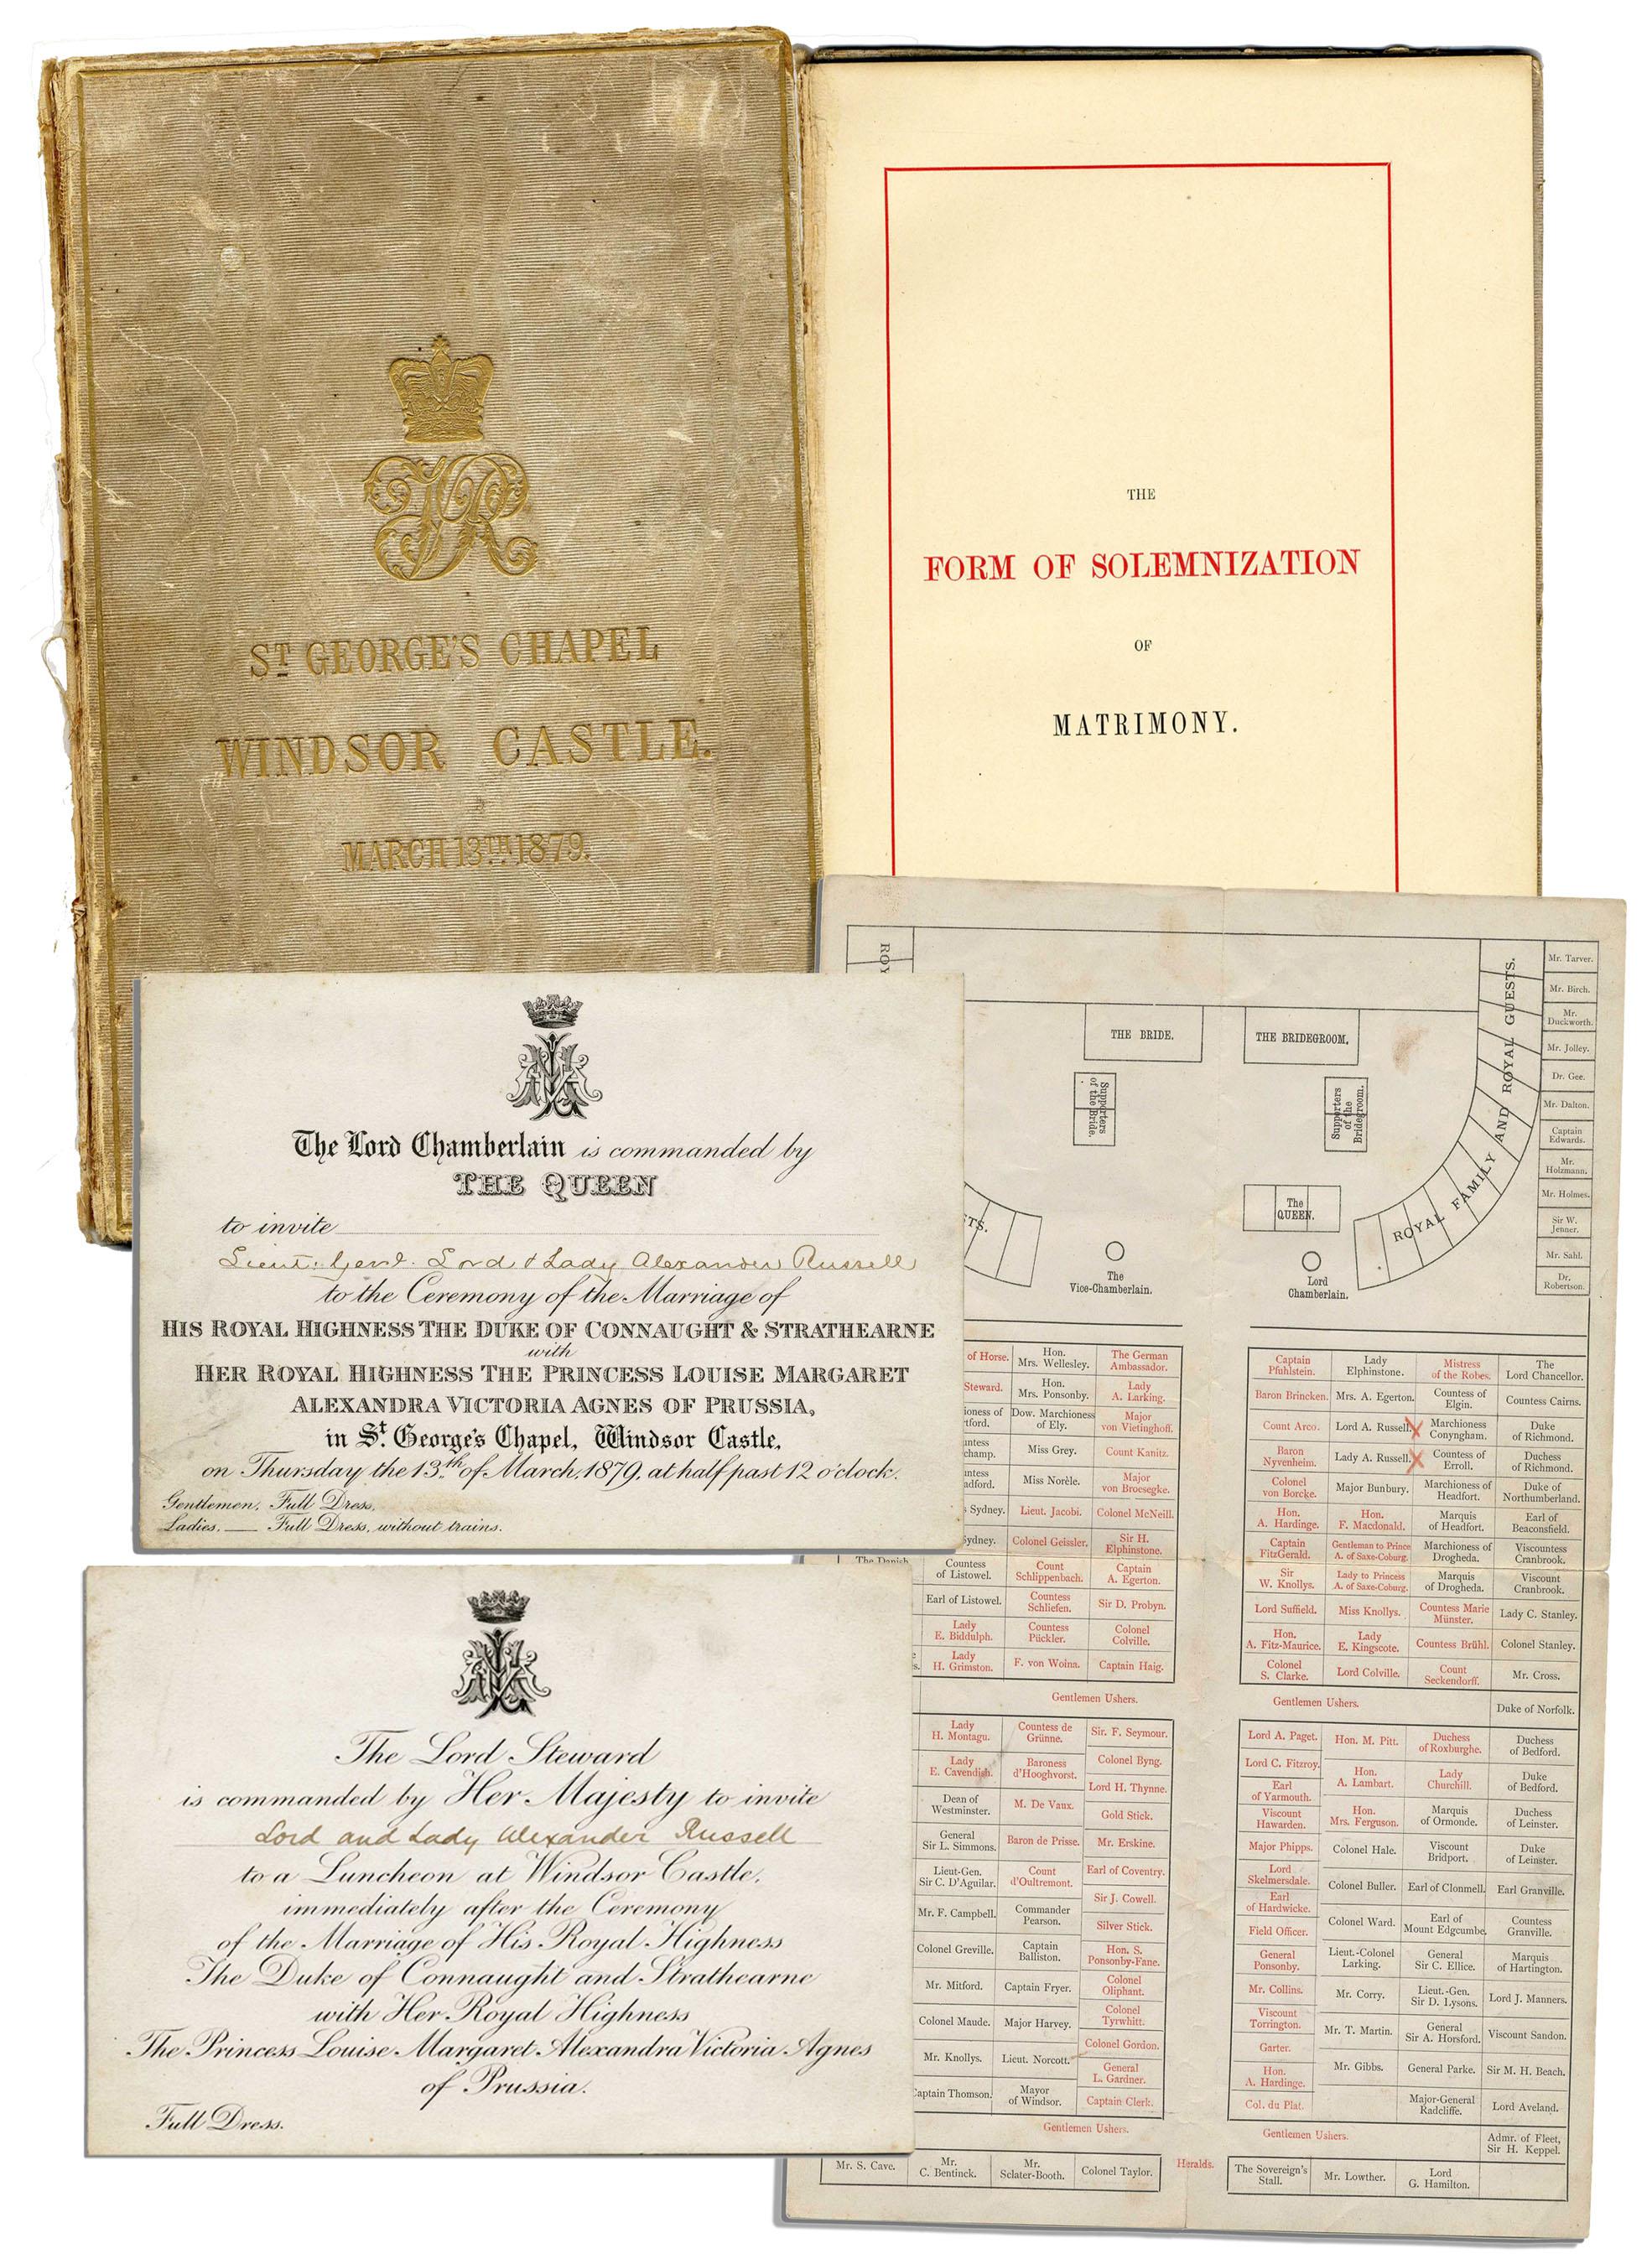 ST GEORGE'S CHAPEL
WINDSOR CASTLE.
MARCH 13TH 1879.
THE
FORM OF SOLEMNIZATION
OF
MATRIMONY.
The Lord Chamberlain is commanded by
THE QUEEN
to invite
Lieut: Genl. Lord & Lady Alexander Russell
to the Ceremony of the Marriage of
HIS ROYAL HIGHNESS THE DUKE OF CONNAUGHT & STRATHEARNE
with
HER ROYAL HIGHNESS THE PRINCESS LOUISE MARGARET
ALEXANDRA VICTORIA AGNES OF PRUSSIA,
in St. George's Chapel, Windsor Castle,
on Thursday the 13th of March, 1879, at half past 12 o'clock.
Gentlemen, Full Dress,
Ladies, — Full Dress, without trains.
The Lord Steward
is commanded by Her Majesty to invite
Lord and Lady Alexander Russell
to a Luncheon at Windsor Castle,
immediately after the Ceremony
of the Marriage of His Royal Highness
The Duke of Connaught and Strathearne
with Her Royal Highness
The Princess Louise Margaret Alexandra Victoria Agnes
of Prussia.
Full Dress.
ROY
THE BRIDE.
THE BRIDEGROOM.
Supporters
of the Bride.
Supporters
of the
Bridegroom.
The
QUEEN.
ROYAL FAMILY AND ROYAL GUESTS.
TS.
The
Vice-Chamberlain.
Lord
Chamberlain.
Mr. Tarver.
Mr. Birch.
Mr.
Duckworth.
Mr. Jolley.
Dr. Gee.
Mr. Dalton.
Captain
Edwards.
Mr.
Holzmann.
Mr. Holmes.
Sir W.
Jenner.
Mr. Sahl.
Dr.
Robertson.
of Horse.
Steward.
ioness of
tford.
untess
champ.
untess
adford.
s Sydney.
Sydney.
The Danish
Countess
of Listowel.
Earl of Listowel.
Lady
E. Biddulph.
Lady
H. Grimston.
Hon.
Mrs. Wellesley.
Hon.
Mrs. Ponsonby.
Dow. Marchioness
of Ely.
Miss Grey.
Miss Norèle.
Lieut. Jacobi.
Colonel Geissler.
Count
Schlippenbach.
Countess
Schliefen.
Countess
Pückler.
F. von Woina.
The German
Ambassador.
Lady
A. Larking.
Major
von Vietinghoff.
Count Kanitz.
Major
von Broesegke.
Colonel McNeill.
Sir H.
Elphinstone.
Captain
A. Egerton.
Sir D. Probyn.
Colonel
Colville.
Captain Haig.
Gentlemen Ushers.
Captain
Pfuhlstein.
Baron Brincken.
Count Arco.
Baron
Nyvenheim.
Colonel
von Borcke.
Hon.
A. Hardinge.
Captain
FitzGerald.
Sir
W. Knollys.
Lord Suffield.
Hon.
A. Fitz-Maurice.
Colonel
S. Clarke.
Lady
Elphinstone.
Mrs. A. Egerton.
Lord A. Russell.
Lady A. Russell.
Major Bunbury.
Hon.
F. Macdonald.
Gentleman to Prince
A. of Saxe-Coburg.
Lady to Princess
A. of Saxe-Coburg.
Miss Knollys.
Lady
E. Kingscote.
Lord Colville.
Mistress
of the Robes.
Countess of
Elgin.
Marchioness
Conyngham.
Countess of
Erroll.
Marchioness of
Headfort.
Marquis
of Headfort.
Marchioness of
Drogheda.
Marquis
of Drogheda.
Countess Marie
Münster.
Countess Brühl.
Count
Seckendorff.
The
Lord Chancellor.
Countess Cairns.
Duke
of Richmond.
Duchess
of Richmond.
Duke of
Northumberland.
Earl of
Beaconsfield.
Viscountess
Cranbrook.
Viscount
Cranbrook.
Lady C. Stanley.
Colonel Stanley.
Mr. Cross.
Gentlemen Ushers.
Duke of Norfolk.
Lady
H. Montagu.
Lady
E. Cavendish.
Dean of
Westminster.
General
Sir L. Simmons.
Lieut-Gen.
Sir C. D'Aguilar.
Mr. F. Campbell.
Colonel Greville.
Mr. Mitford.
Colonel Maude.
Mr. Knollys.
Captain Thomson.
Countess de
Grünne.
Baroness
d'Hooghvorst.
M. De Vaux.
Baron de Prisse.
Count
d'Oultremont.
Commander
Pearson.
Captain
Balliston.
Captain Fryer.
Major Harvey.
Lieut. Norcott.
Mayor
of Windsor.
Sir. F. Seymour.
Colonel Byng.
Lord H. Thynne.
Gold Stick.
Mr. Erskine.
Earl of Coventry.
Sir J. Cowell.
Silver Stick.
Hon. S.
Ponsonby-Fane.
Colonel
Oliphant.
Colonel
Tyrwhitt.
Colonel Gordon.
General
L. Gardner.
Captain Clerk.
Gentlemen Ushers.
Lord A. Paget.
Lord C. Fitzroy.
Earl
of Yarmouth.
Viscount
Hawarden.
Major Phipps.
Lord
Skelmersdale.
Earl
of Hardwicke.
Field Officer.
General
Ponsonby.
Mr. Collins.
Viscount
Torrington.
Garter.
Hon.
A. Hardinge.
Col. du Plat.
Hon. M. Pitt.
Hon.
A. Lambart.
Hon.
Mrs. Ferguson.
Colonel Hale.
Colonel Buller.
Colonel Ward.
Lieut.-Colonel
Larking.
Mr. Corry.
Mr. T. Martin.
Mr. Gibbs.
Duchess
of Roxburghe.
Lady
Churchill.
Marquis
of Ormonde.
Viscount
Bridport.
Earl of Clonmell.
Earl of
Mount Edgcumbe.
General
Sir C. Ellice.
Lieut.-Gen.
Sir D. Lysons.
General
Sir A. Horsford.
General Parke.
Major-General
Radcliffe.
Duchess
of Bedford.
Duke
of Bedford.
Duchess
of Leinster.
Duke
of Leinster.
Earl Granville.
Countess
Granville.
Marquis
of Hartington.
Lord J. Manners.
Viscount Sandon.
Sir M. H. Beach.
Lord Aveland.
Gentlemen Ushers.
Admr. of Fleet,
Sir H. Keppel.
Mr. S. Cave.
Mr.
C. Bentinck.
Mr.
Sclater-Booth.
Colonel Taylor.
Heralds.
The Sovereign's
Stall.
Mr. Lowther.
Lord
G. Hamilton.